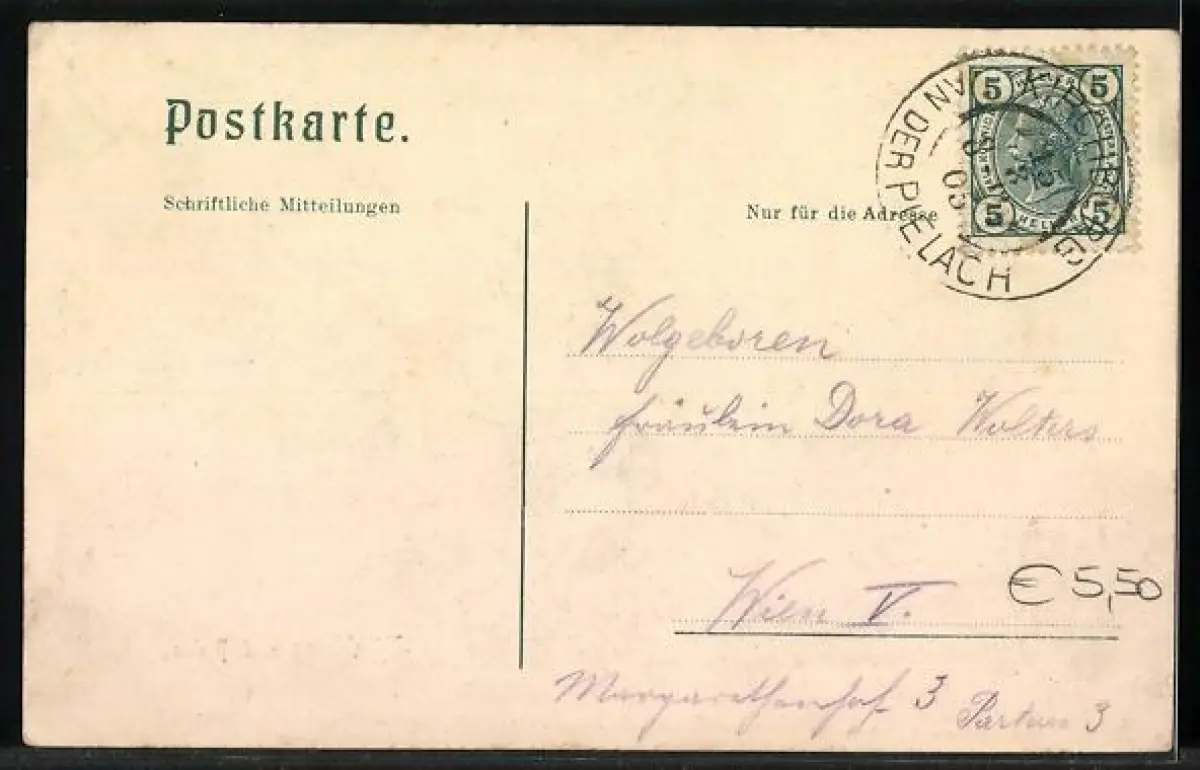 Postkarte.
Schriftliche Mitteilungen
Nur für die Adresse
5 5
5 HELLER 5
KIRCHBERG
AN DER PIELACH
Wolgeboren
Fräulein Dora Wolters
Wien V.
€ 5,50
Margarethenhof 3
3